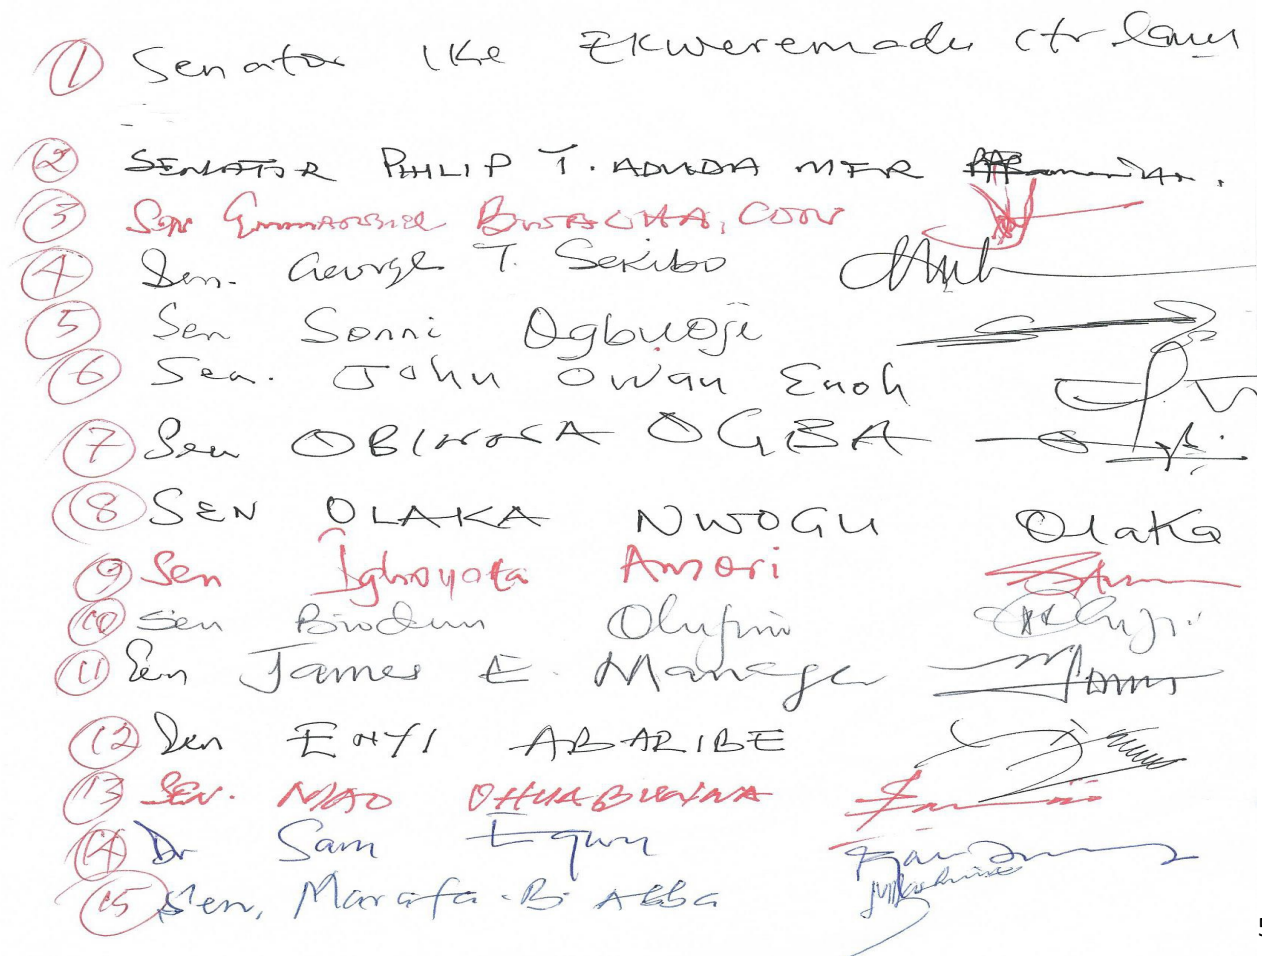 1 Senator Ike Ekweremadu CFR
2 SENATOR PHILIP T. ADUDA MFR
3 Sen Emmanuel BWACHA, CON
4 Sen. George T. Sekibo
5 Sen Sonni Ogbuoji
6 Sen. John Owan Enoh
7 Sen OBINNA OGBA
8 SEN OLAKA NWOGU Olaka
9 Sen Ighoyota Amori
10 Sen Biodun Olujimi
11 Sen James E. Manager
12 Sen ENYI ABARIBE
13 SEN. MAO OHUABUNWA
14 Dr Sam Egwu
15 Sen, Marafa B. Abba
5